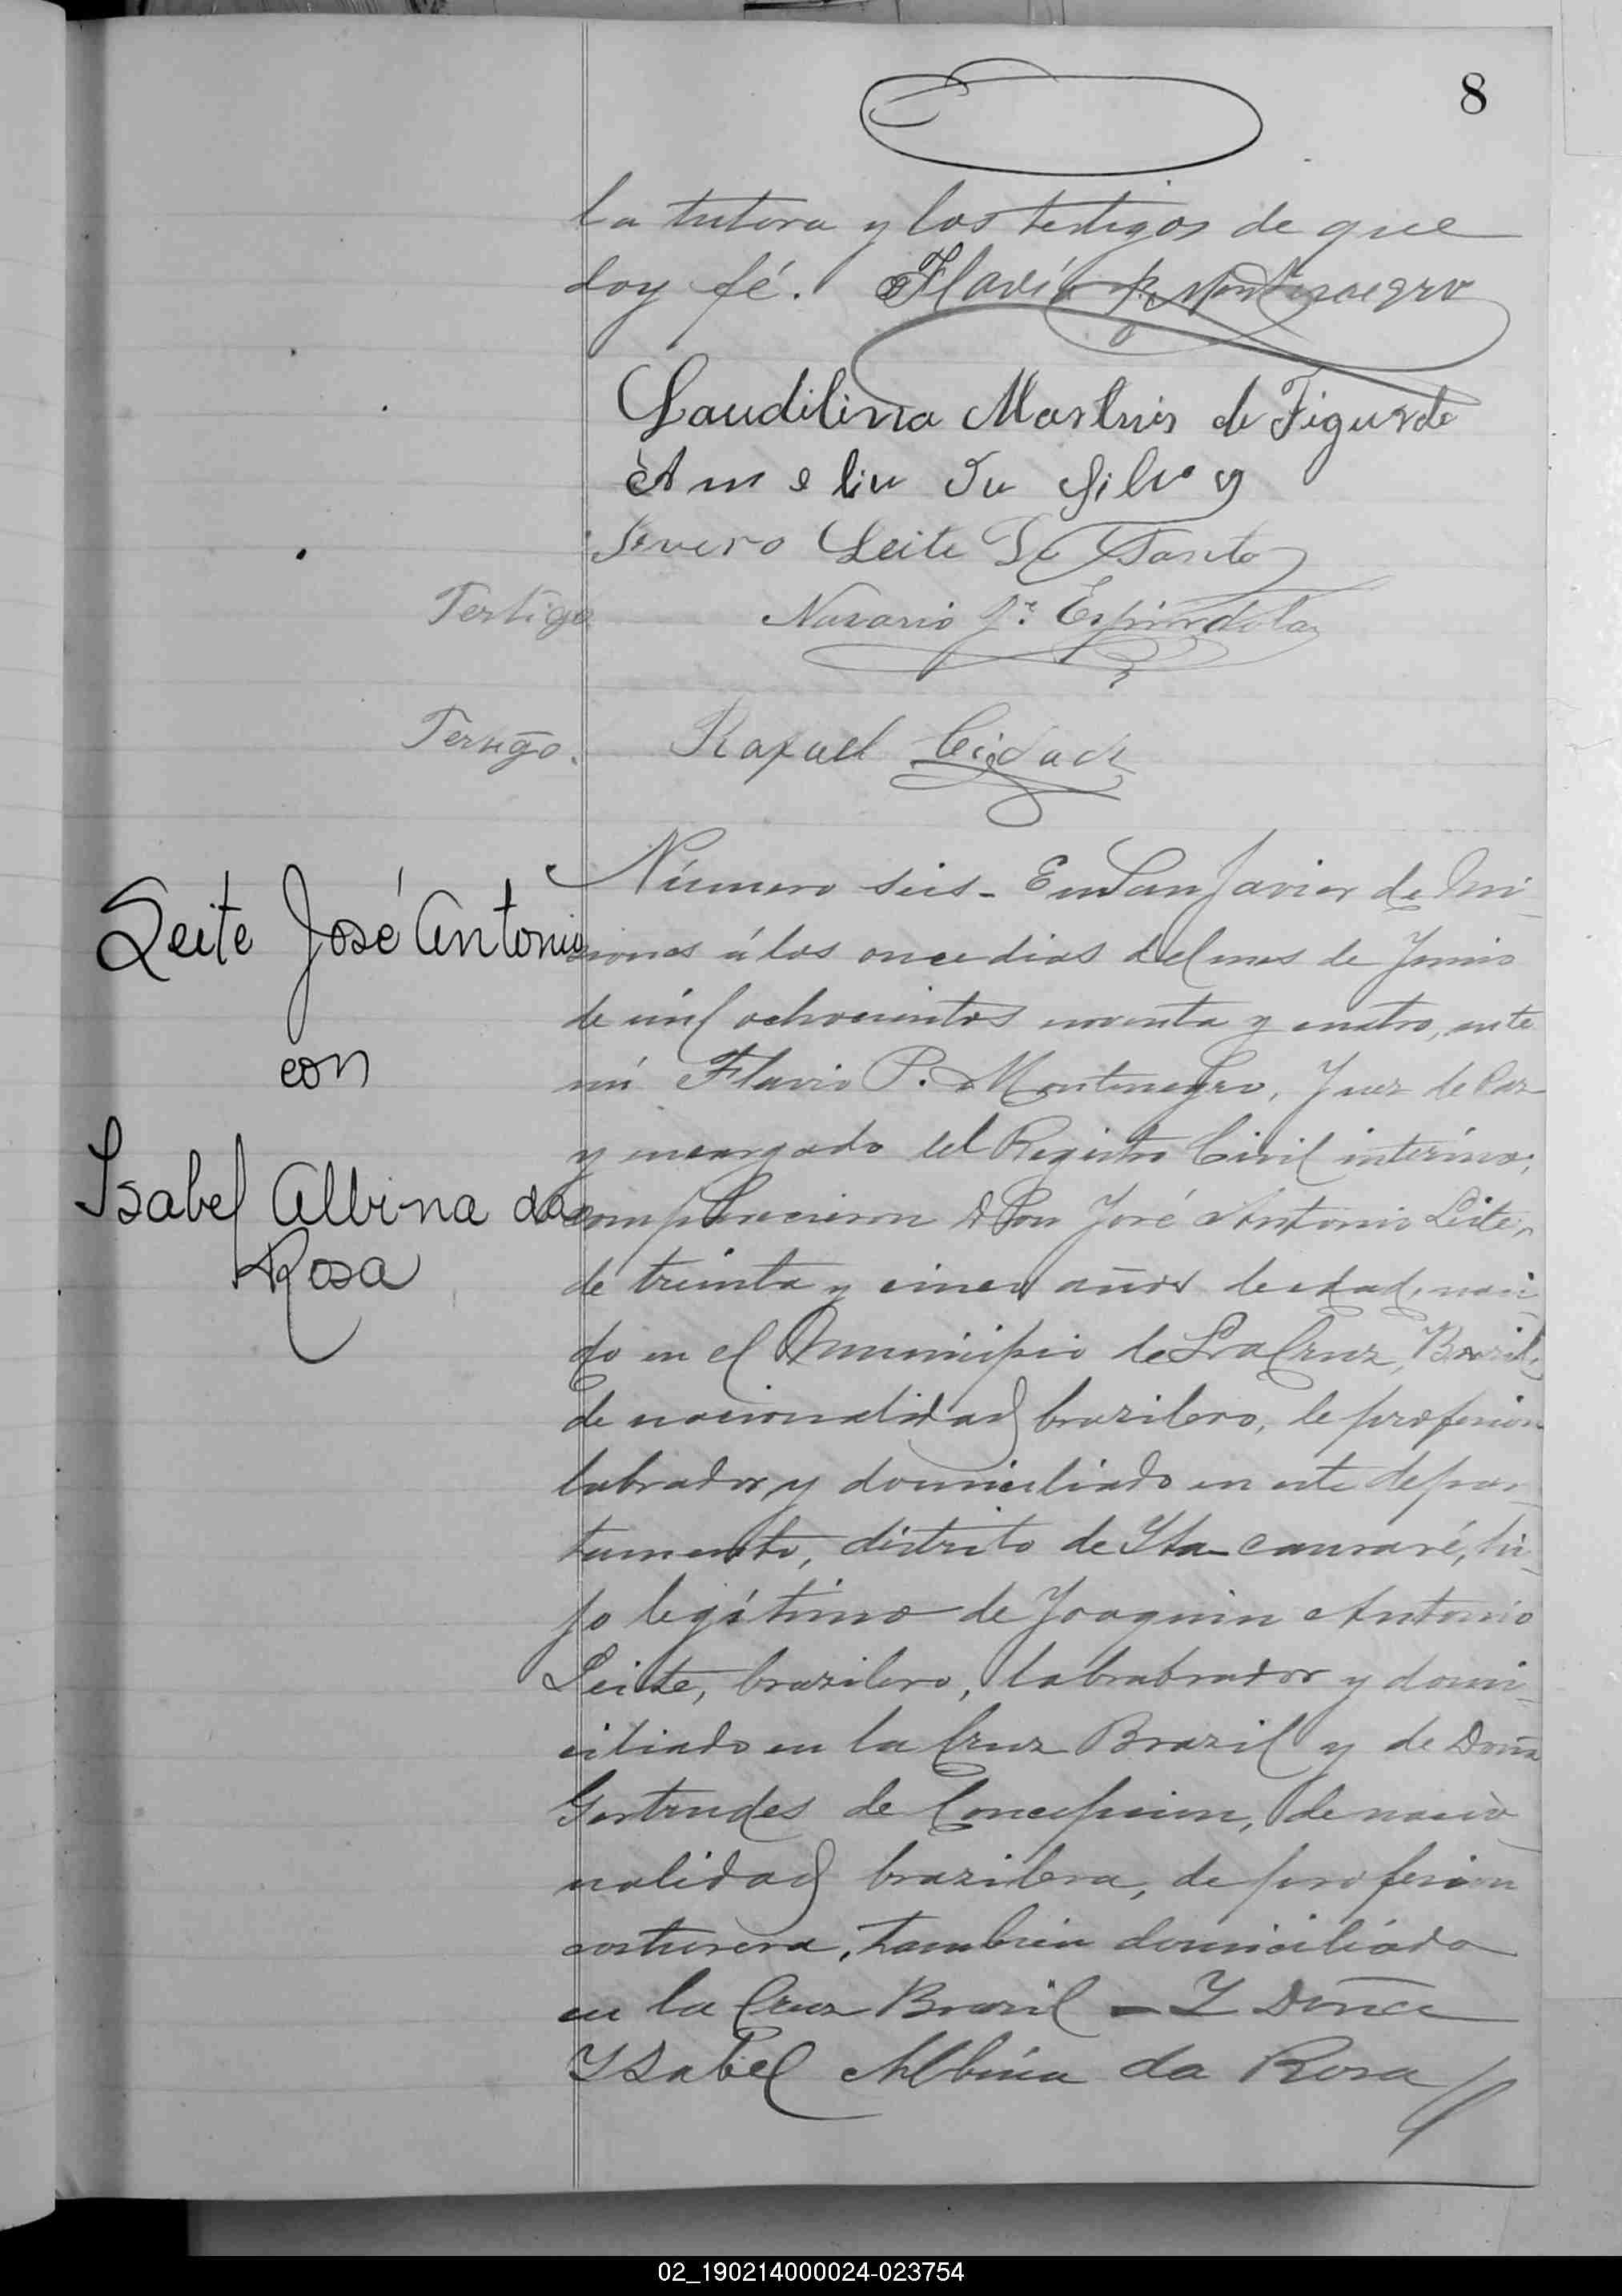 8
la tutora y los testigos de que
doy fé. Flavio P. Montenegro
Laudilina Martins de
Amelia da Silva
Severo Leite
Testigo
Navario Espindola
Testigo.
Rafael
Leite José Antonio
con
Isabel Albina da
Rosa
Número seis - En San Javier de Mi-
siones á los once dias del mes de Junio
de mil ochocientos noventa y cuatro, ante
mí Flavio P. Montenegro, Juez de Paz
y encargado del Registro Civil interino;
comparecieron Don José Antonio Leite,
de treinta y cinco años de edad, naci-
do en el Municipio de La Cruz, Brazil,
de nacionalidad brazilero, de profesion
labrador y domiciliado en este depar-
tamento, distrito de Ytacararé, hi-
jo legítimo de Joaquin Antonio
Leite, brazilero, labrabrador y domi-
ciliado en la Cruz Brazil y de Doña
Gertrudes de Concepcion, de nacio-
nalidad brazilera, de profesion
costurera, tambien domiciliada
en la Cruz Brazil - Y Doña
Ysabel Albina da Rosa
02_190214000024-023754